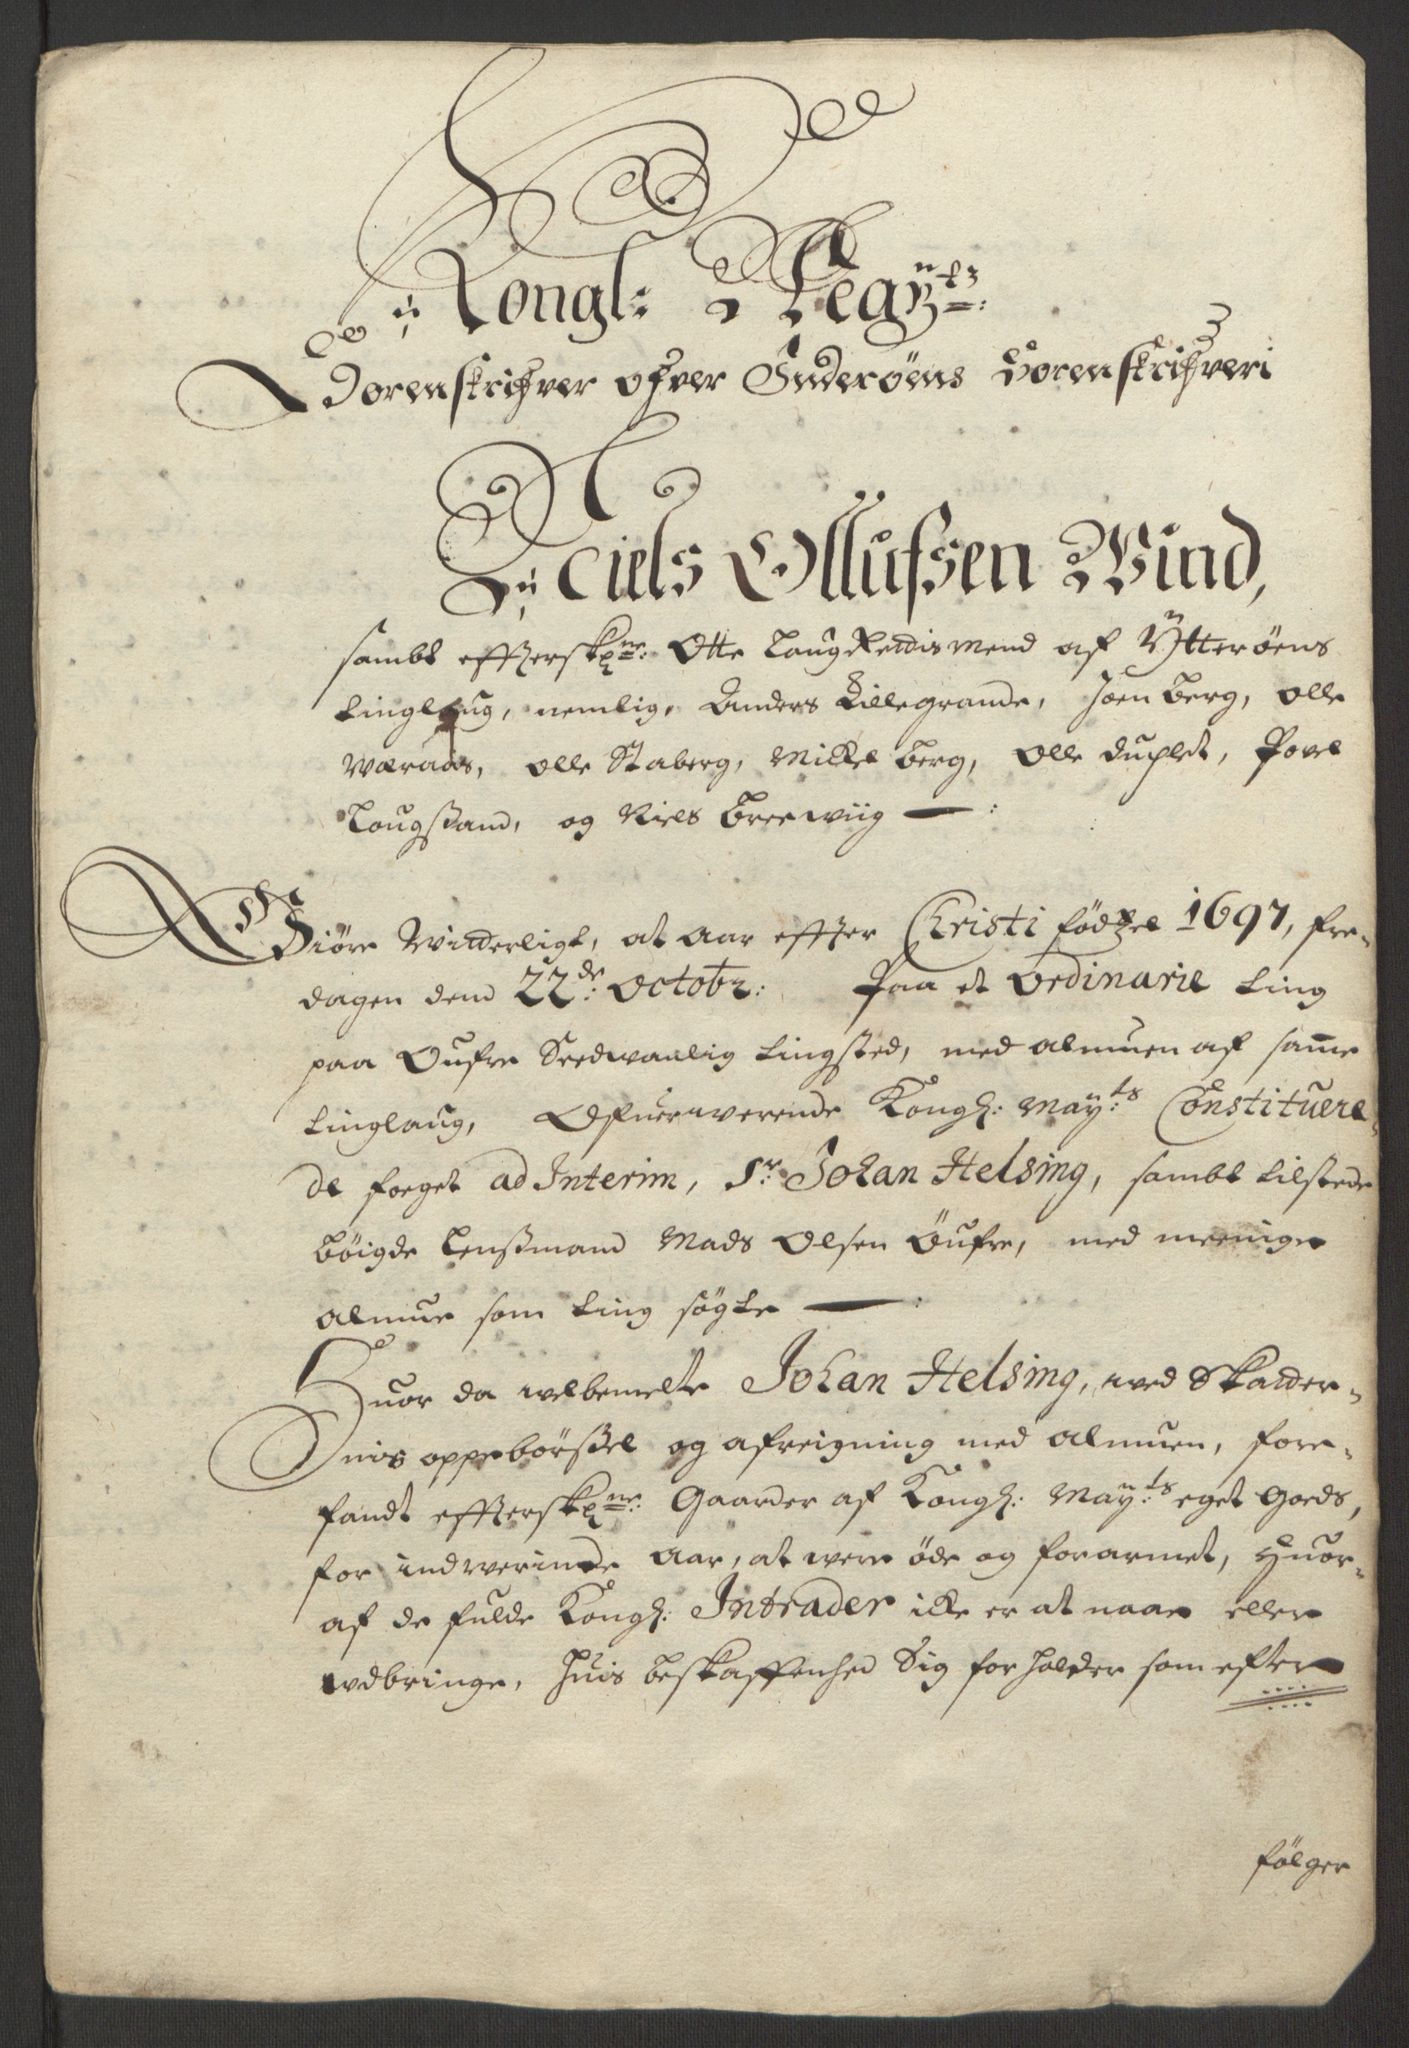 Kongl: Mayts:
Sorenskrifver ofver Inderöens Sorenskrifveri
Niels Ollufsen Wind,
sambt effterskrne: Otte LaugRettismend af Ytteröens
tinglaug, nemlig, Anders Lillegrande, Joen Berg, Olle
Werdahls, Olle Staberg, Mickel Berg, Olle Duflet, Povel
Laugsand, og Niels Breewiig —:
Giöre Witterligt, at aar effter Christi födtzel 1697, fre-
dagen dend 22de: Octobr: Paa et Ordinarie ting
paa Öufre Sedwanlig tingsted, med almuen af samme
tinglaug, Ofuerwerende Kongl: Mayts: Constituere-
de foeget ad Interim, Sr: Johan Helsing, sambt tilstede
böigde Lensmand Mads Olsen Öufre, med meenige
almue som ting sögte —:
Huor da welbemelte Johan Helsing, wed Skatter-
nis oppebörsel og afreigning med almuen, fore-
fandt effterskrne: Gaarder af Kongl: Mayts: eget Goeds,
for indwerinde aar, at were öde og forarmet, huor-
af de fulde Kongl: Intrader icke er at naae eller
udbringe, huis beskaffenhed Sig forholder som efter
fölger